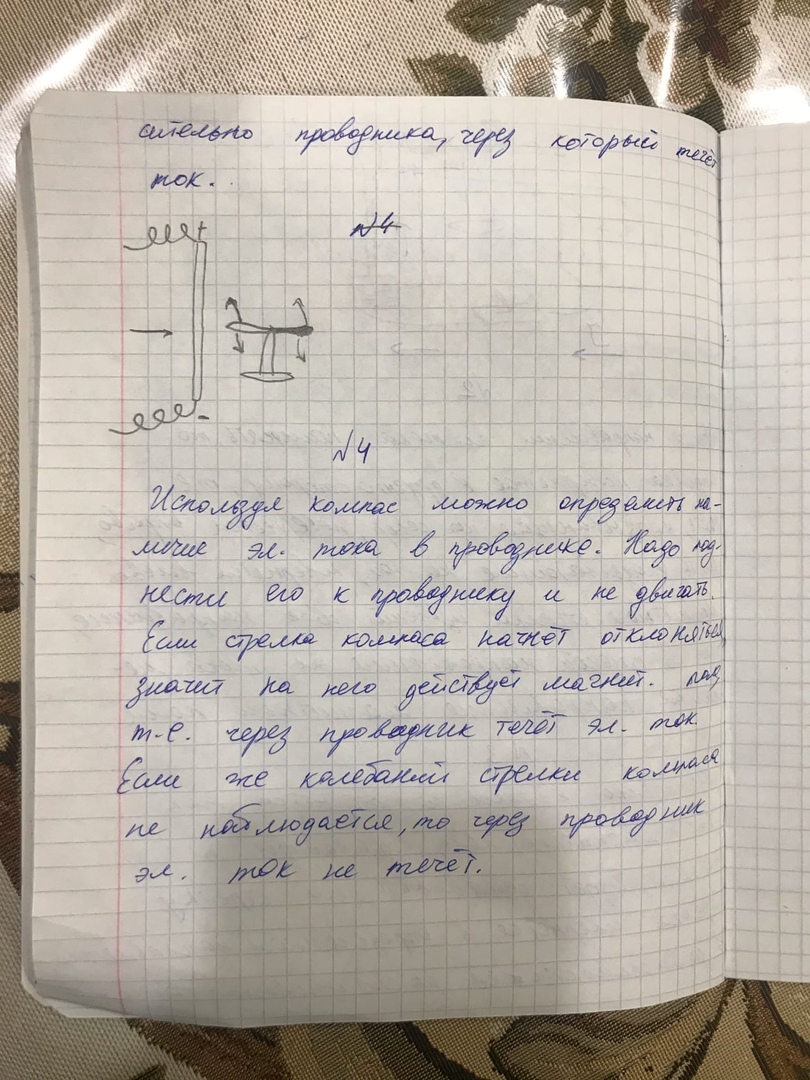 сительно проводника, через который течёт
ток.
№4
+
-
№4
Используя компас можно определить на-
личие эл. тока в проводнике. Надо под-
нести его к проводнику и не двигать.
Если стрелка компаса начнёт отклоняться
значит на него действует магнит. поле,
т.е. через проводник течёт эл. ток.
Если же колебаний стрелки компаса
не наблюдается, то через проводник
эл. ток не течёт.